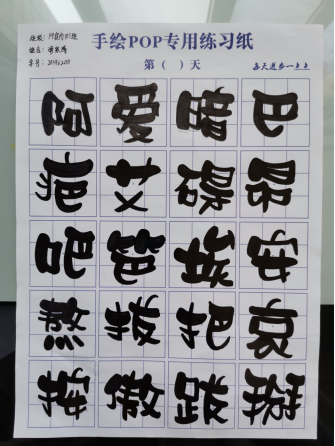 手绘POP专用练习纸
第（ ）天
每天进步一点点
班级：
姓名：
学号：
阿爱暗巴
疤艾碍昂
吧笆埃安
熬拔把哀
按傲跋掰